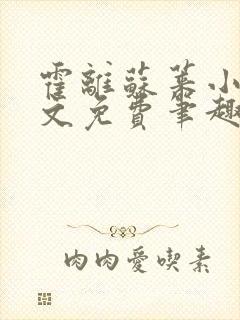 霍離蘇蒃小
文免費筆趣
肉肉愛喫素